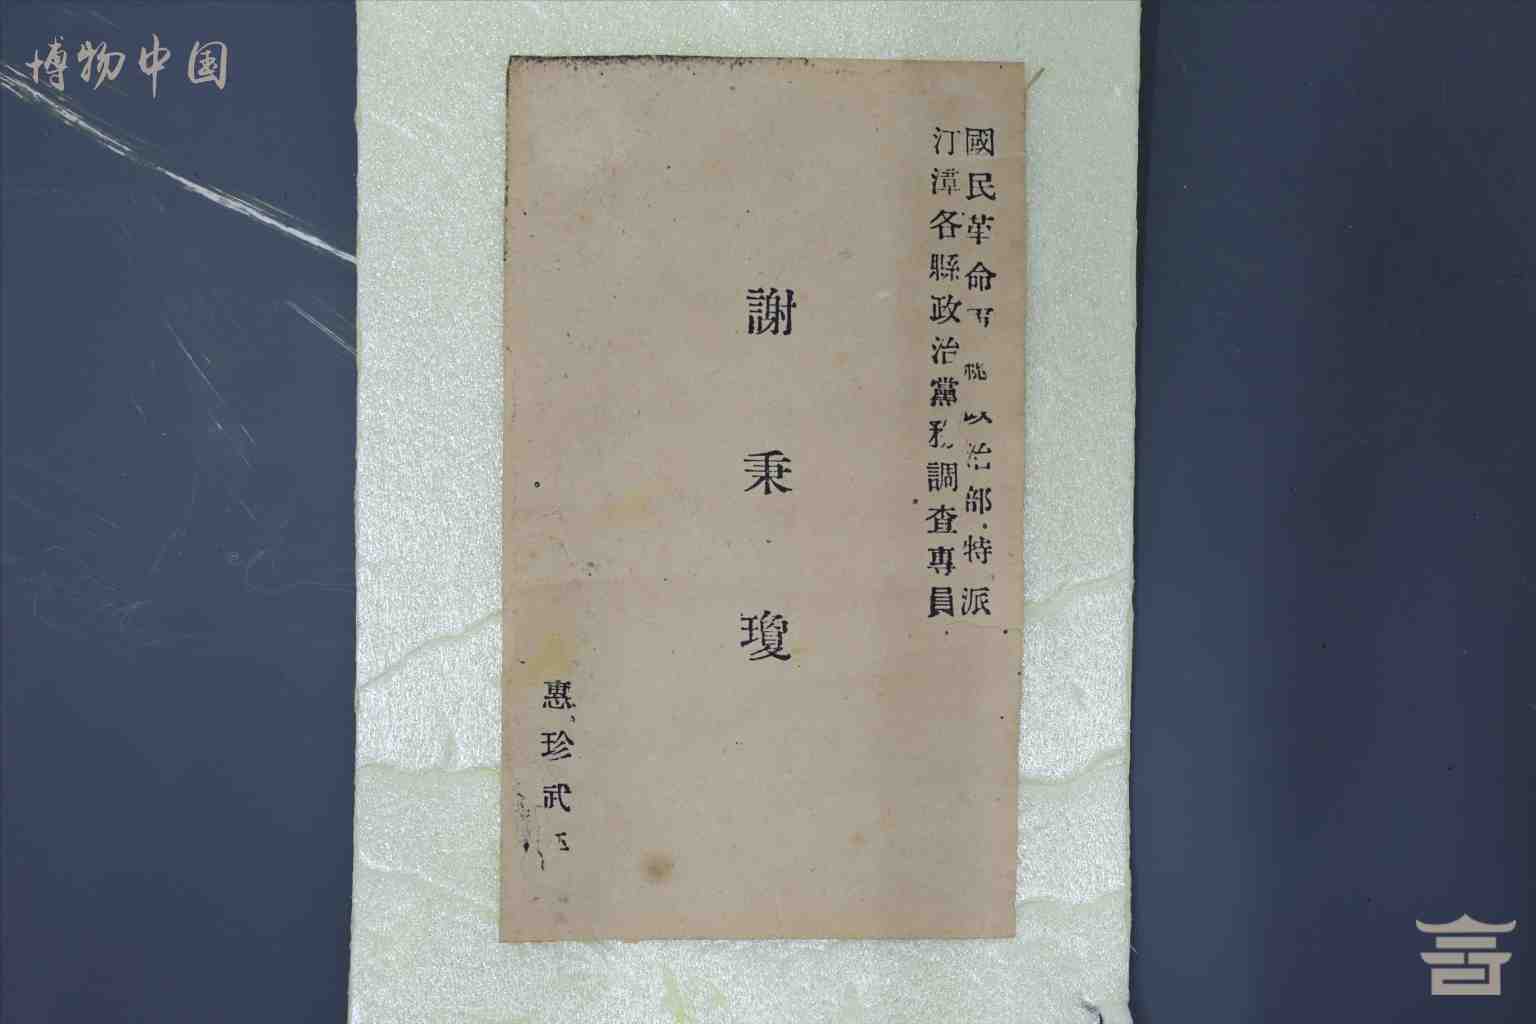 博物中国
國民革命 政治部特派
汀漳各縣政治黨務調查專員
謝秉瓊
惠珍武